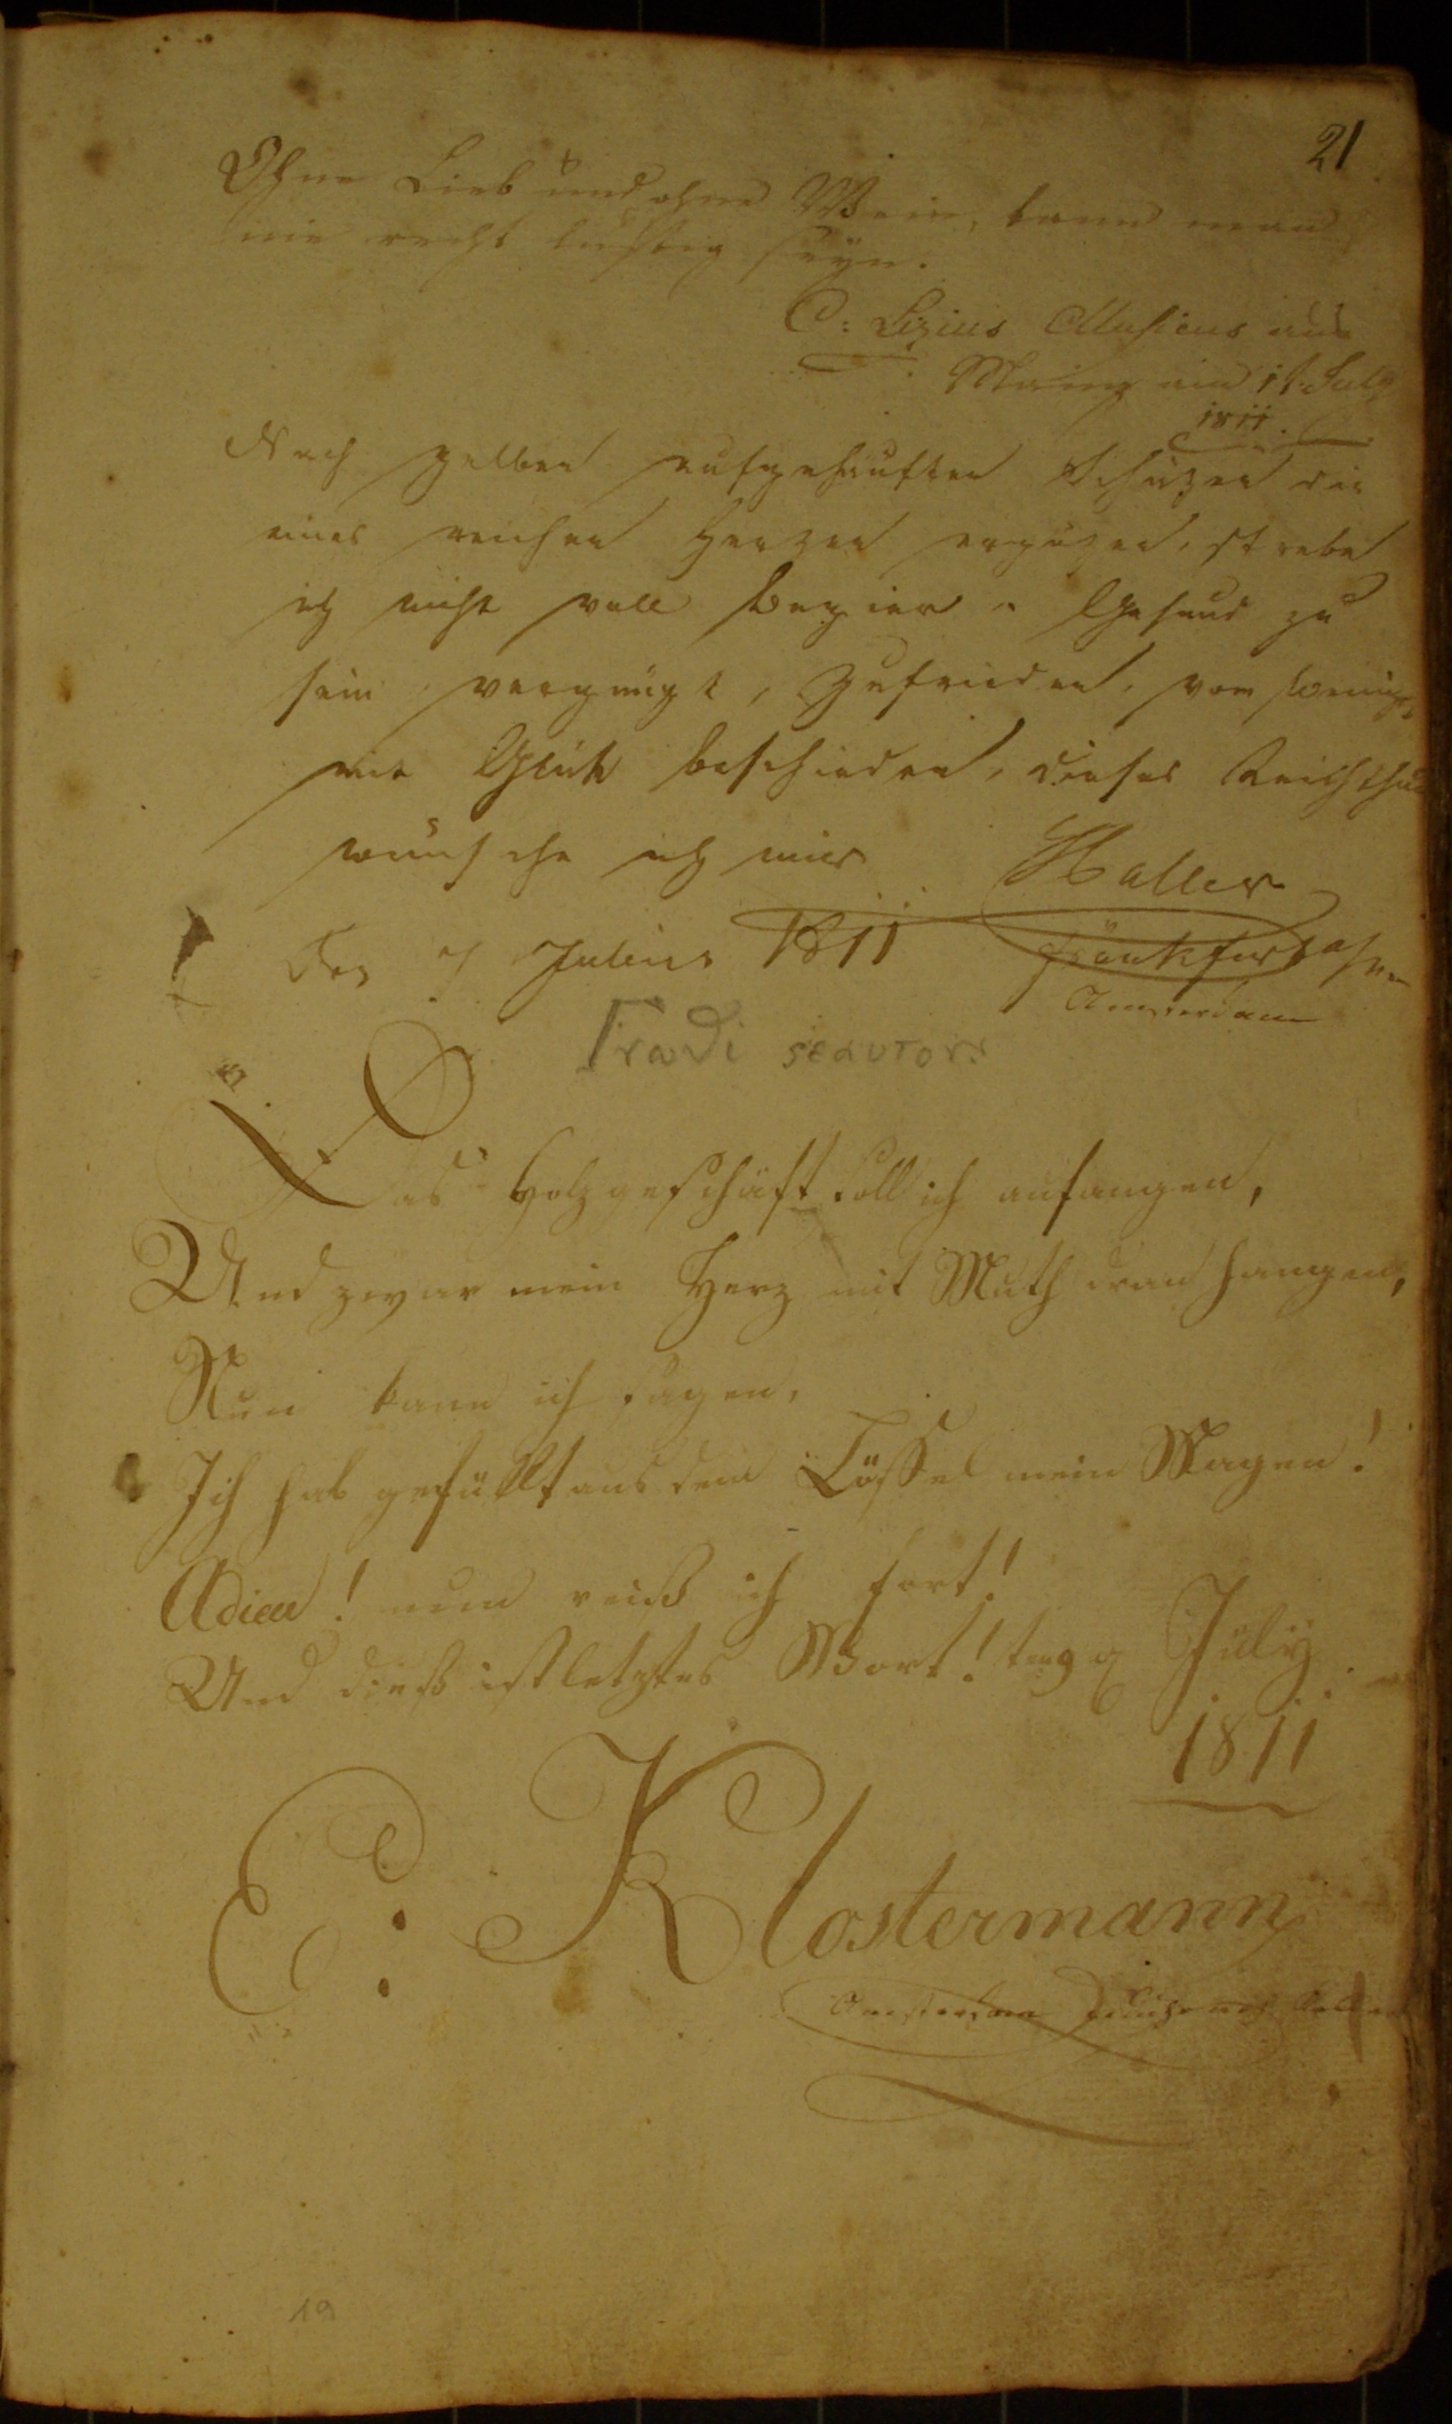 21
Ohne Lieb und ohne Wein, kann man
nie recht lustig seyn.
C: Lizius Musicus aus
Mainz am 11 July
1811.
Nach gelben aufgehäuften Schäzen die
eines reichen Herzen ergezen, strebe
ich nicht voll begier. Gesund zu
sein vergnügt, Zufrieden, vom
Glück beschieden, dieses Reichthum
wünsche ich mir Haller
Den 7 Julius 1811 Frankfurt
Amsterdam
Das Holzgeschäft soll ich anfangen,
Und zwar mein Herz mit Muth dran hangen,
Nun kann ich sagen,
Ich hab gefüllt aus dem Löffel mein Magen!
Adieu! nun reiß ich fort!
Und dieß ist letztes Wort! July
1811
C: Klostermann
Amsterdam
19